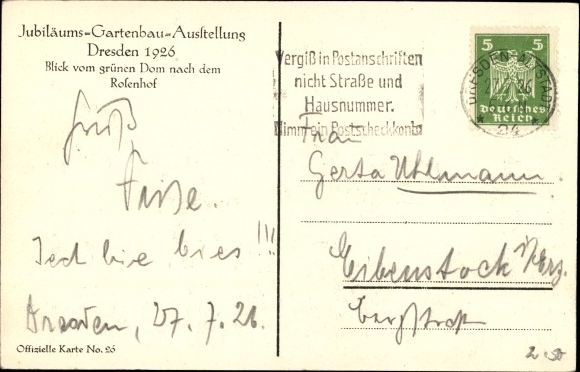 Jubiläums-Gartenbau-Ausstellung
Dresden 1926
Blick vom grünen Dom nach dem
Rosenhof
Gruß
Ich bie bies !!!
Dresden, 27. 7. 26.
Offizielle Karte No. 26
Vergiß in Postanschriften
nicht Straße und
Hausnummer.
Nimm ein Postscheckkonto
5 5
Deutsches
Reich
DRESDEN-ALTSTADT
24
Frau
Gerta Uhlmann
Eibenstock i/Erz.
Bergstraße
2.50